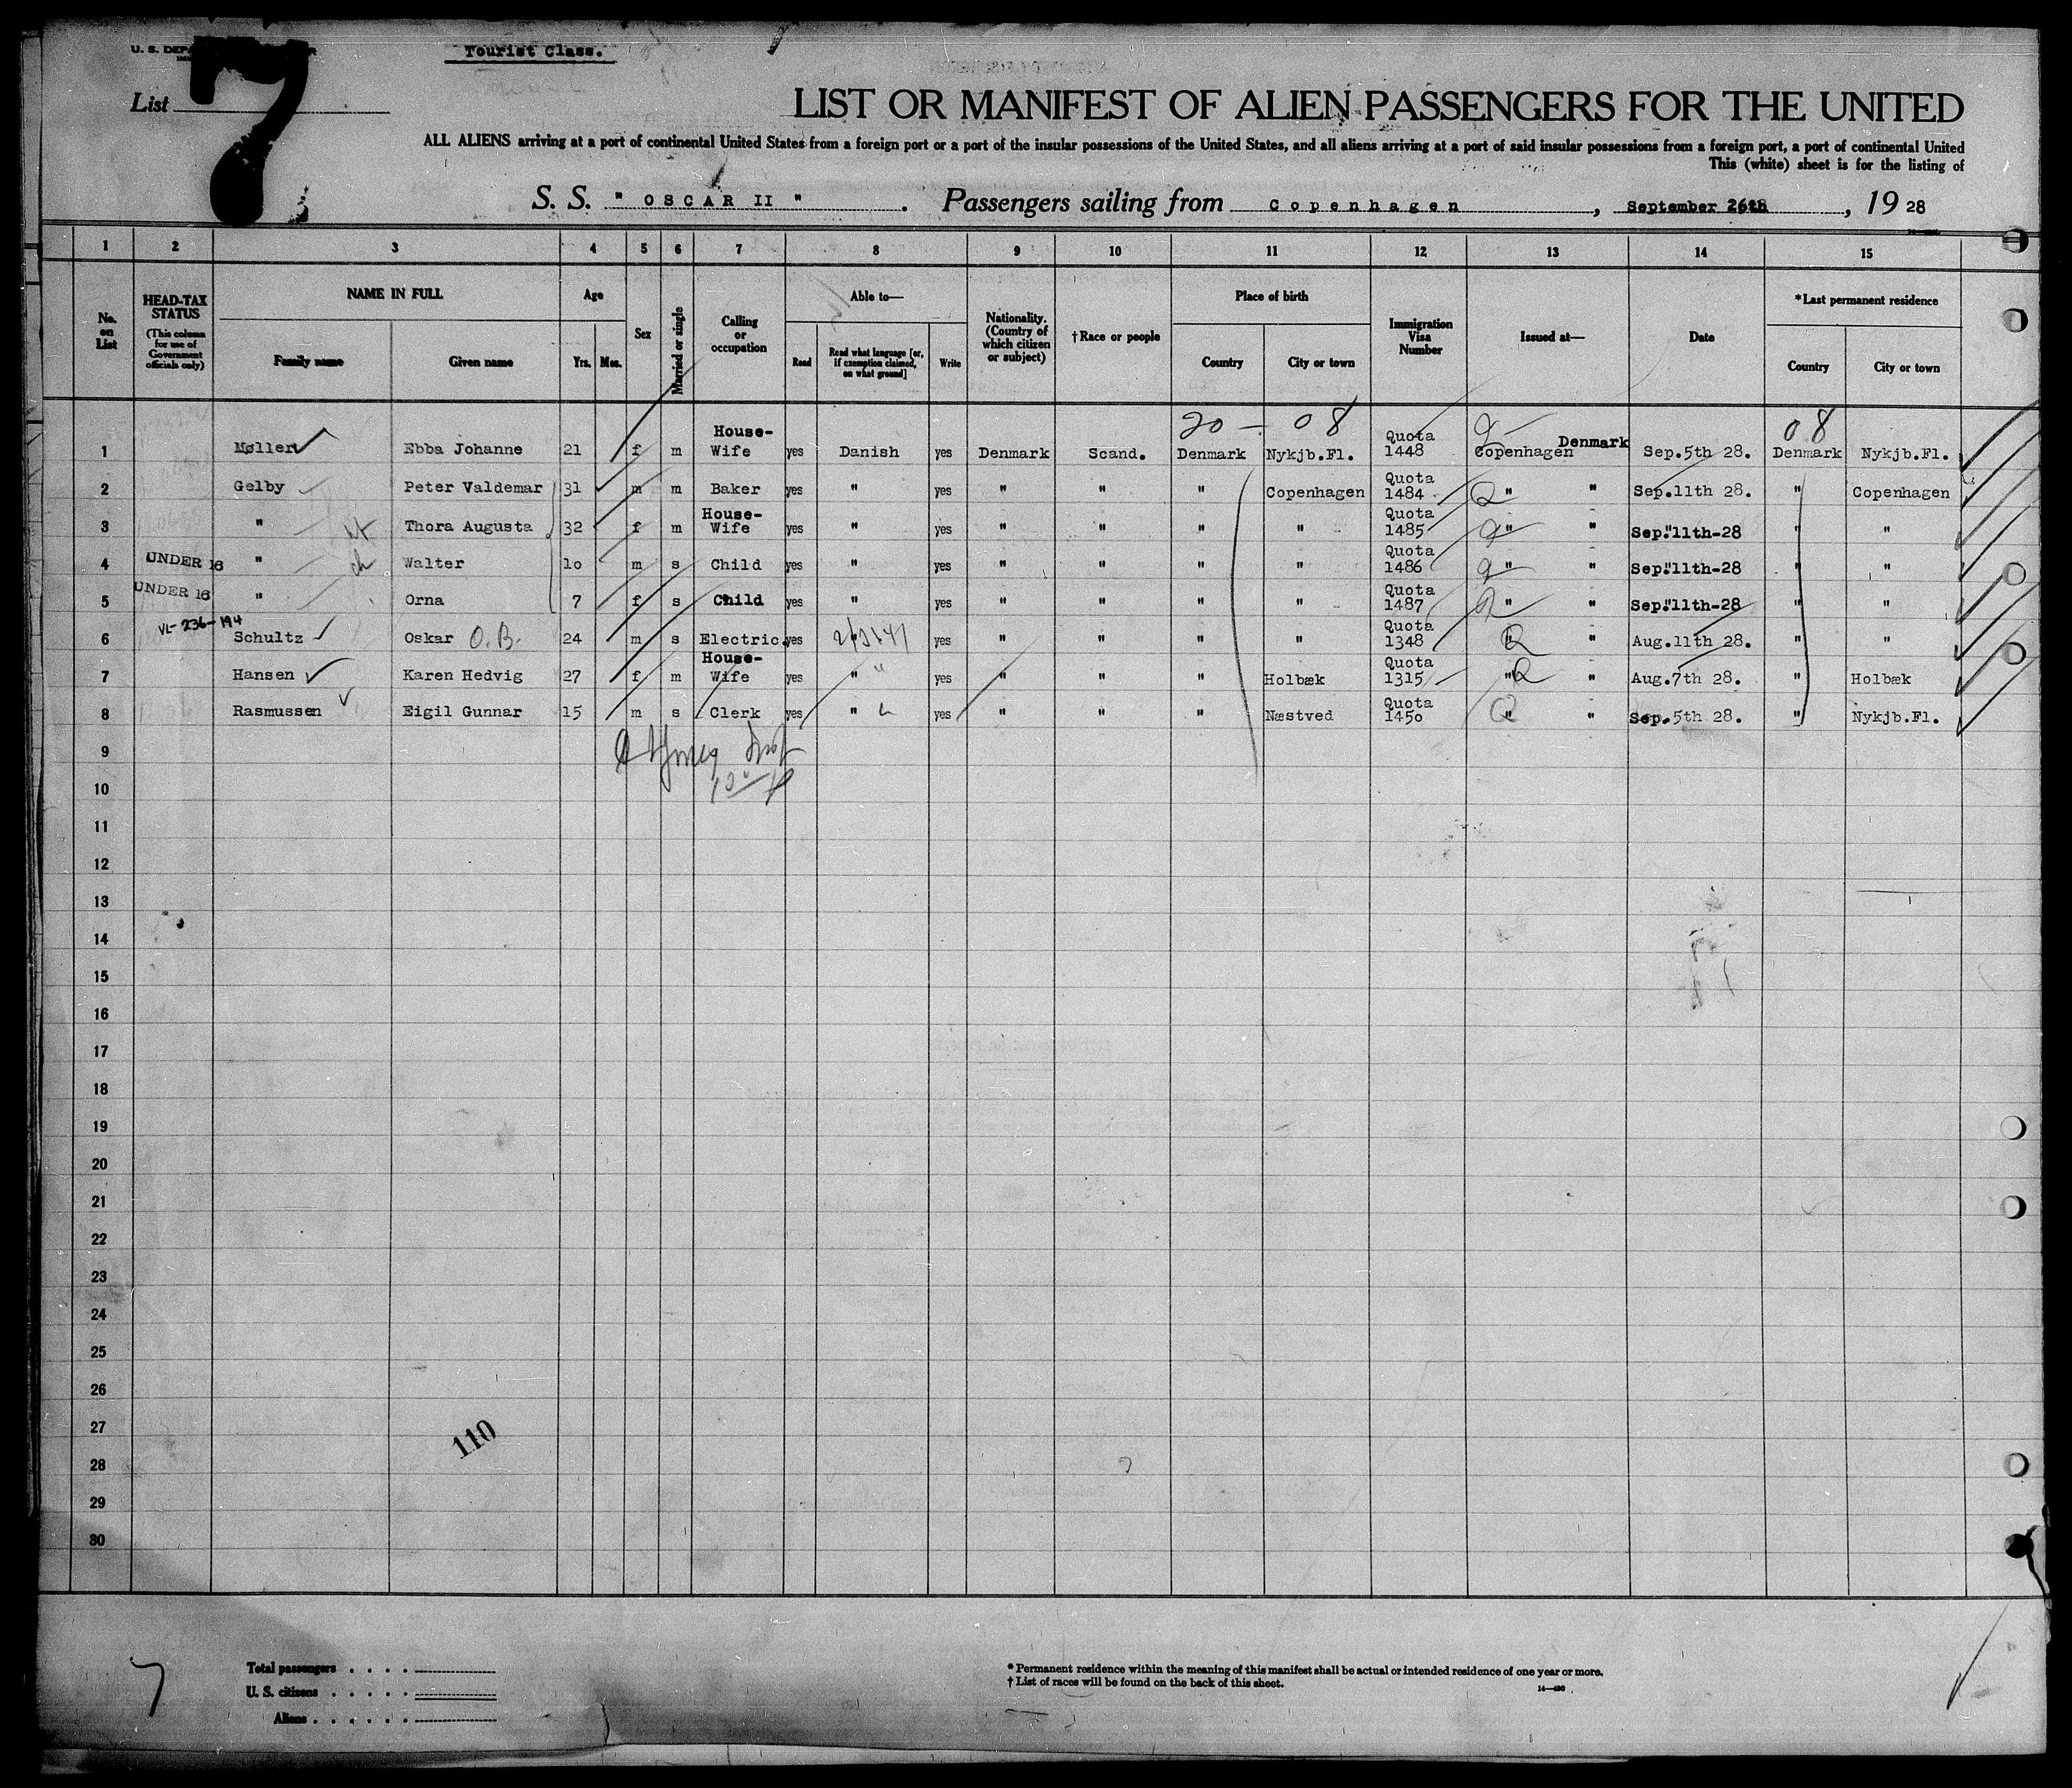 Tourist Class.
List 7
LIST OR MANIFEST OF ALIEN PASSENGERS FOR THE UNITED
ALL ALIENS arriving at a port of continental United States from a foreign port or a port of the insular possessions of the United States, and all aliens arriving at a port of said insular possessions from a foreign port, a port of continental United
This (white) sheet is for the listing of
S. S. " OSCAR II " . Passengers sailing from Copenhagen , September 26th , 19 28
1 2 3 4 5 6 7 8 9 10 11 12 13 14 15
No. on List
HEAD-TAX STATUS
(This column for use of Government officials only)
NAME IN FULL
Family name Given name
Age
Yrs. Mos.
Sex
Married or single
Calling or occupation
Able to—
Read
Read what language [or, if exemption claimed, on what ground]
Write
Nationality. (Country of which citizen or subject)
†Race or people
Place of birth
Country City or town
Immigration Visa Number
Issued at—
Date
*Last permanent residence
Country City or town
20 - 08 08
1 Møller Ebba Johanne 21 f m House-Wife yes Danish yes Denmark Scand. Denmark Nykjb.Fl. Quota 1448 Copenhagen Denmark Sep.5th 28. Denmark Nykjb.Fl.
2 Gelby Peter Valdemar 31 m m Baker yes " yes " " " Copenhagen Quota 1484 Q " " Sep.11th 28. " Copenhagen
3 " Thora Augusta 32 f m House-Wife yes " yes " " " " Quota 1485 " " Sep."11th-28 " "
4 UNDER 16 " Walter 10 m s Child yes " yes " " " " Quota 1486 " " Sep."11th-28 " "
5 UNDER 16 " Orna 7 f s Child yes " yes " " " " Quota 1487 " " Sep."11th-28 " "
VL-236-194
6 Schultz Oskar O.B. 24 m s Electric. yes " yes " " " " Quota 1348 Q " " Aug.11th 28. " "
7 Hansen Karen Hedvig 27 f m House-Wife yes " yes " " " Holbæk Quota 1315 Q " " Aug.7th 28. " Holbæk
8 Rasmussen Eigil Gunnar 15 m s Clerk yes " yes " " " Næstved Quota 1450 Q " " Sep.5th 28. " Nykjb.Fl.
9
10
11
12
13
14
15
16
17
18
19
20
21
22
23
24
25
26
27
110
28
29
30
7
Total passengers . . . .
U. S. citizens . . . . .
Aliens . . . . . .
* Permanent residence within the meaning of this manifest shall be actual or intended residence of one year or more.
† List of races will be found on the back of this sheet.